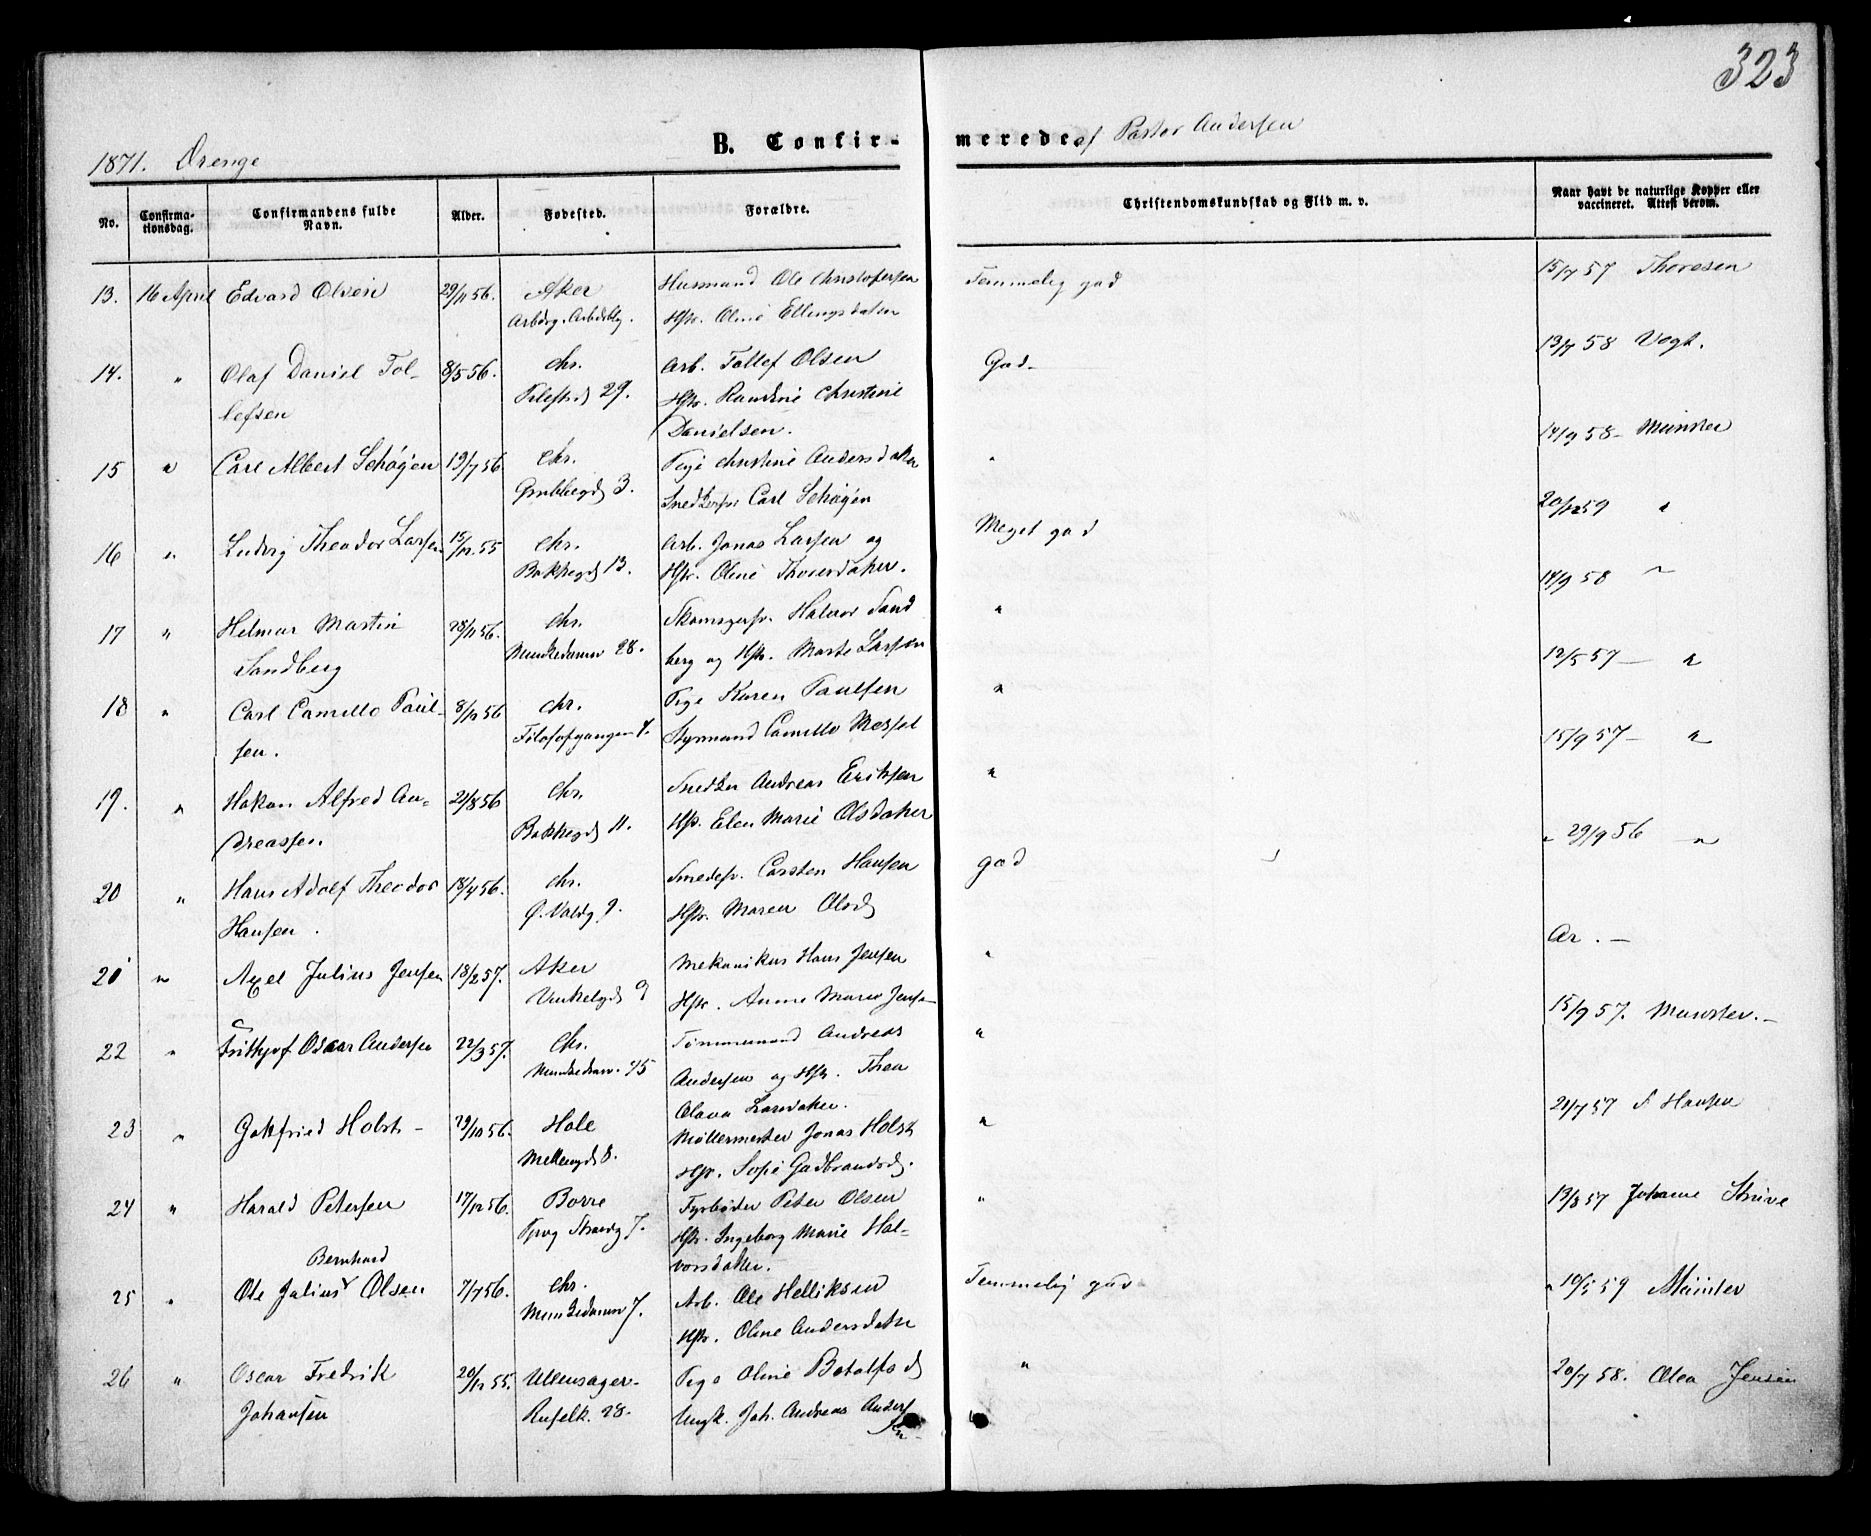 323
1871. Drenge B. Confir- merede af Pastor Andersen
No. Confirma-tionsdag. Confirmandens fulde Navn. Alder. Fødested. Forældre. Christendomskundskab og Flid m. v. Naar havt de naturlige Kopper eller vaccineret. Attest derom.
13. 16 April Edvard Olsen 29/11 56. Aker Husmand Ole Christofersen Temmelig god 15/7 57 Thoresen
Hstr. Oline Ellingsdatter
14. " Olaf Daniel Tol- 8/5 56. Chr. Arb. Tollef Olsen God 13/7 58 Vogt.
lefsen 29. Hstr. Randine Christine
Danielsen.
15 " Carl Albert Schøgen 19/7 56 Chr. Pige Christine Andersdatter " 14/9 58 - Münster
Grubbegd 3. Snedkersv. Carl Schøgen
16 " Ludvig Theodor Larsen 15/12 55 Chr. Arb. Jonas Larsen og Meget god 20/12 59 "
Bakkegd 13. Hstr. Oline Thorsdatter.
17 " Helmar Martin 28/11 56. Chr. Skomagersv. Halvor Sand " 14/9 58 "
Sandberg Munkedamv 28. berg og Hstr. Marte Larsen
18 " Carl Camillo Paul- 8/12 56 Chr. Pige Karen Paulsen " 12/5 57 - "
sen. Filosofgangen Styrmand Camillo
19. " Hakon Alfred An- 21/8 56 Chr. Snedker Andreas Eriksen " 15/9 57 - "
dreassen Bakkegd 11. Hstr. Elen Marie Olsdatter
20 " Hans Adolf Theodor 18/4 56. Chr. Smedesv. Carsten Hansen god " 29/9 56 "
Hansen. Ø. Voldg 9. Hstr. Maren Olsd
21 " Axel Julius Jensen 18/2 57. Aker Mekanikus Hans Jensen " Ar. -
Vinkelgd 9 Hstr. Anne Marie Jensen
22 " Frithjof Oscar Andersen 22/3 57. Chr. Tømmermand Andreas " 15/9 57. Münster. -
Munkedamv. 45 Andersen og Hstr. Thea
Olava Larsdatter.
23 " Gotfried Holst - 29/10 56. Hole Møllermester Jonas Holst " 21/7 57 F Hansen
Mellemgd 8. Hstr. Sofie Gudbrandsd.
24 " Harald Petersen 17/12 56. Borre Fyrbøder Peter Olsen " 13/8 57 Johanne Struve
Strandg 7. Hstr. Ingeborg Marie Hal-
vorsdatter.
Bernhard
25 " Ole Julius Olsen 7/7 56. Chr. Arb. Ole Helliksen Temmelig god " 10/5 59 Münster
Munkedamv 7. Hstr. Oline Andersdatter
26 " Oscar Fredrik 20/12 55. Ullensager. Pige Oline Botolfsd " 20/7 58. Olea Jensen
Johansen Ruselk. 28. Ungk. Joh. Andreas Anders
sen